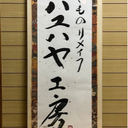 きものリメイク
ハスハヤ工房